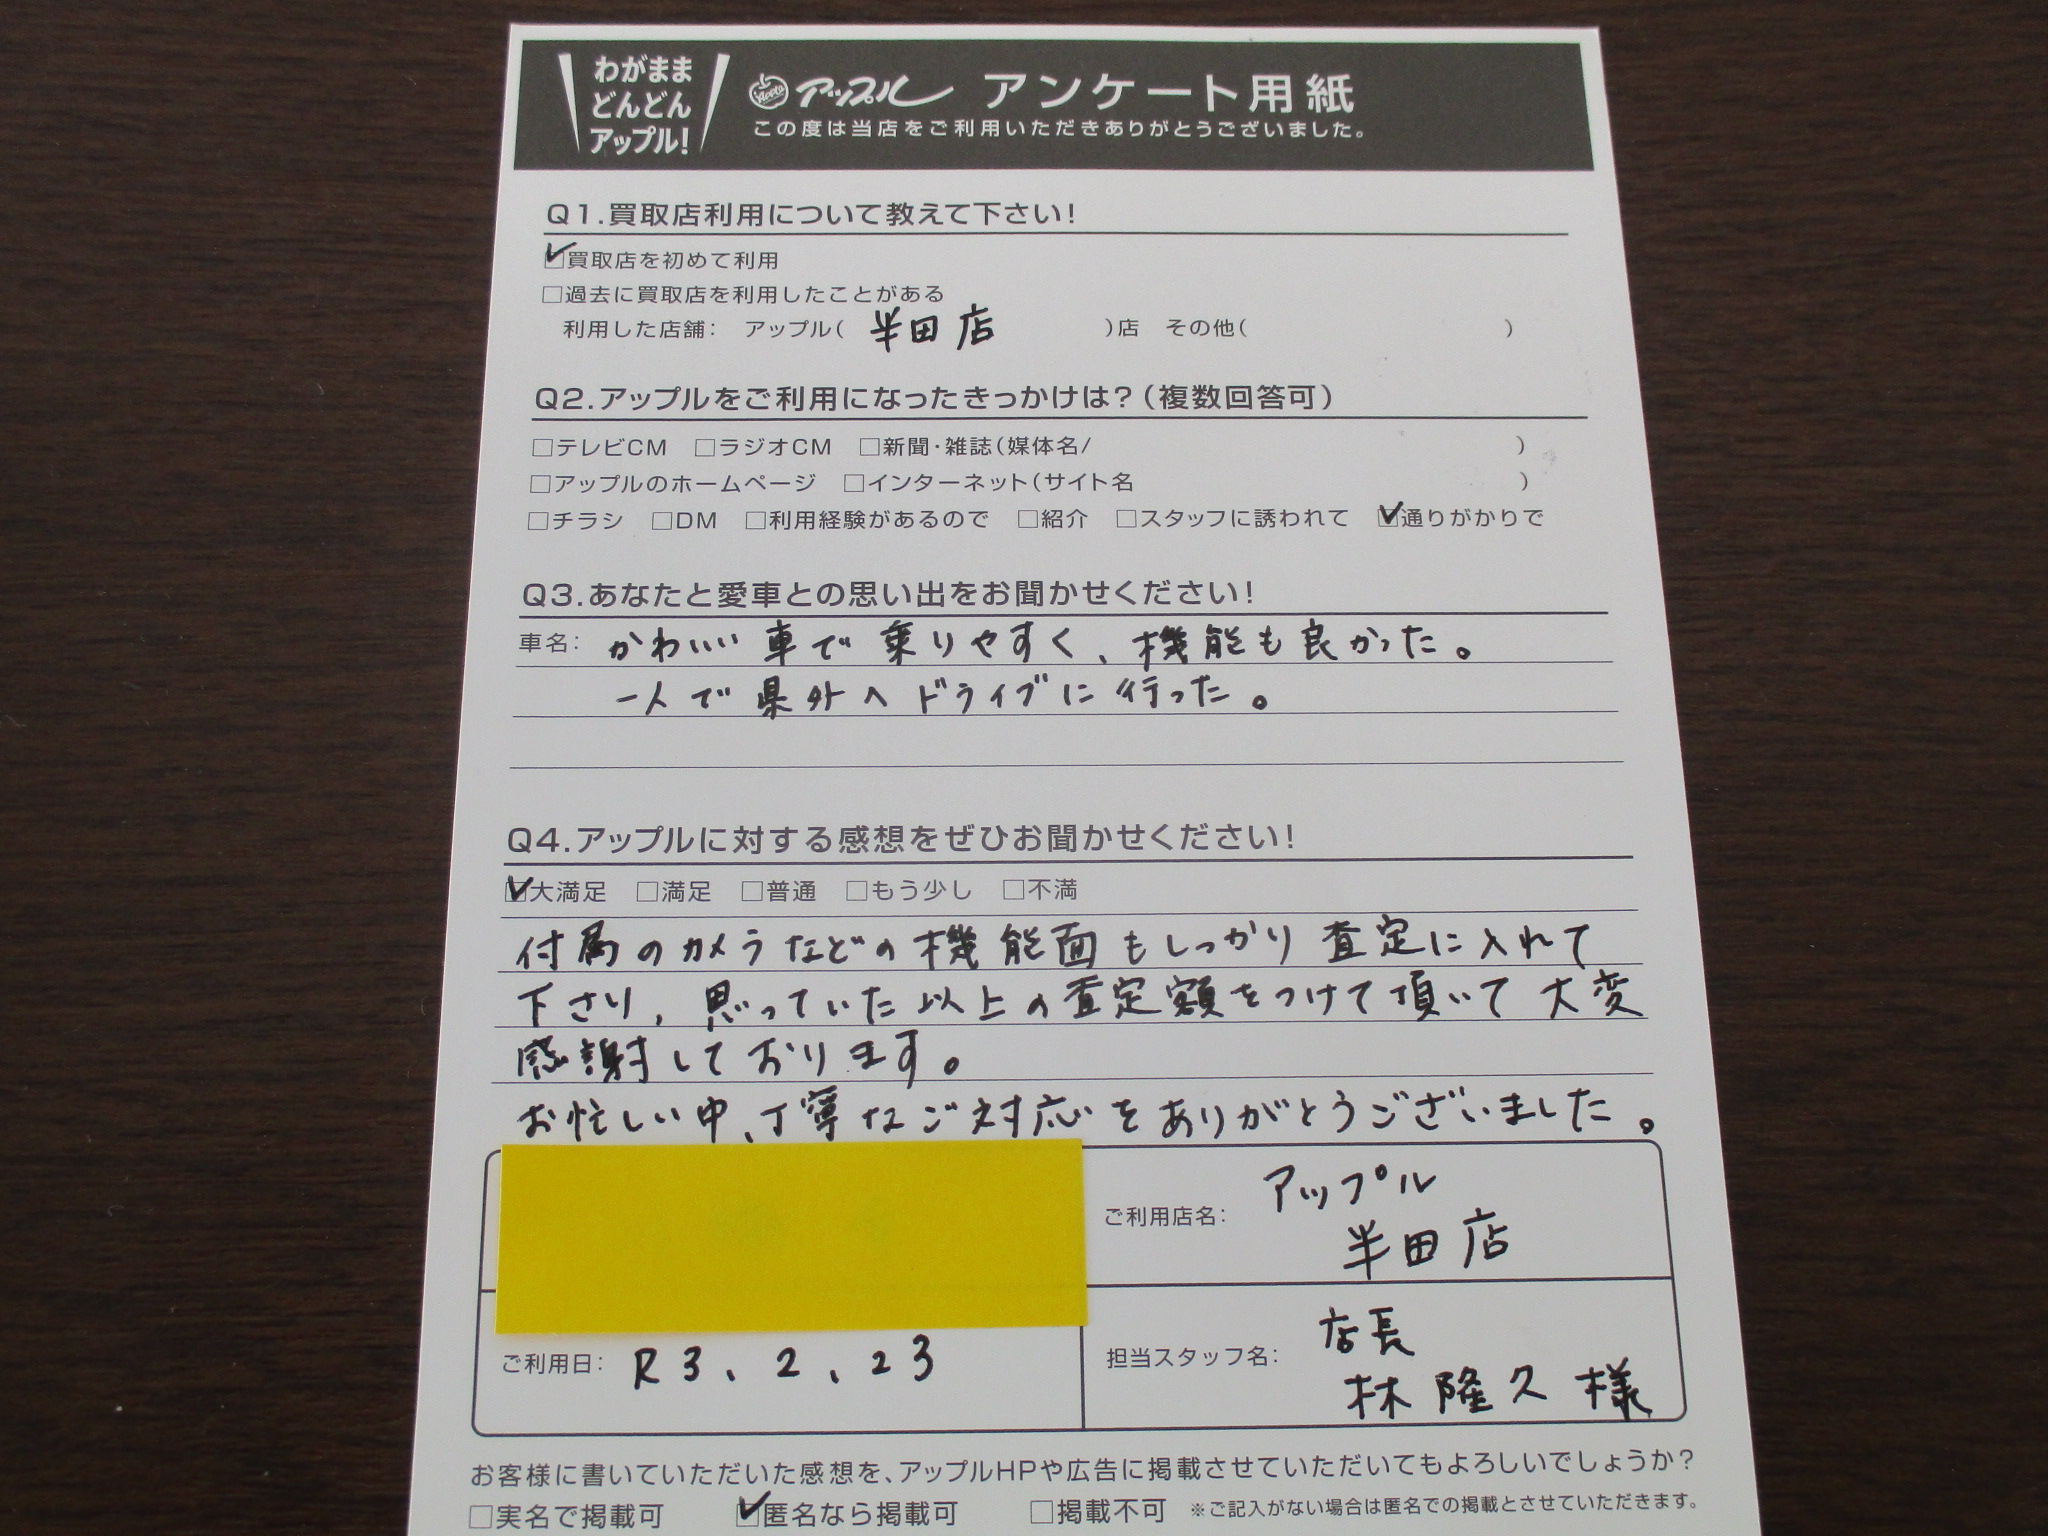 わがまま
どんどん
アップル!
Apple アップル アンケート用紙
この度は当店をご利用いただきありがとうございました。
Q1.買取店利用について教えて下さい!
☑買取店を初めて利用
□過去に買取店を利用したことがある
利用した店舗: アップル( 半田店 )店 その他( )
Q2.アップルをご利用になったきっかけは?(複数回答可)
□テレビCM □ラジオCM □新聞・雑誌(媒体名/ )
□アップルのホームページ □インターネット(サイト名 )
□チラシ □DM □利用経験があるので □紹介 □スタッフに誘われて ☑通りがかりで
Q3.あなたと愛車との思い出をお聞かせください!
車名: かわいい車で乗りやすく、機能も良かった。
一人で県外へドライブに行った。
Q4.アップルに対する感想をぜひお聞かせください!
☑大満足 □満足 □普通 □もう少し □不満
付属のカメラなどの機能面もしっかり査定に入れて
下さり、思っていた以上の査定額をつけて頂いて大変
感謝しております。
お忙しい中、丁寧なご対応をありがとうございました。
ご利用店名: アップル
半田店
ご利用日: R3.2.23
担当スタッフ名: 店長
林隆久様
お客様に書いていただいた感想を、アップルHPや広告に掲載させていただいてもよろしいでしょうか?
□実名で掲載可 ☑匿名なら掲載可 □掲載不可 ※ご記入がない場合は匿名での掲載とさせていただきます。